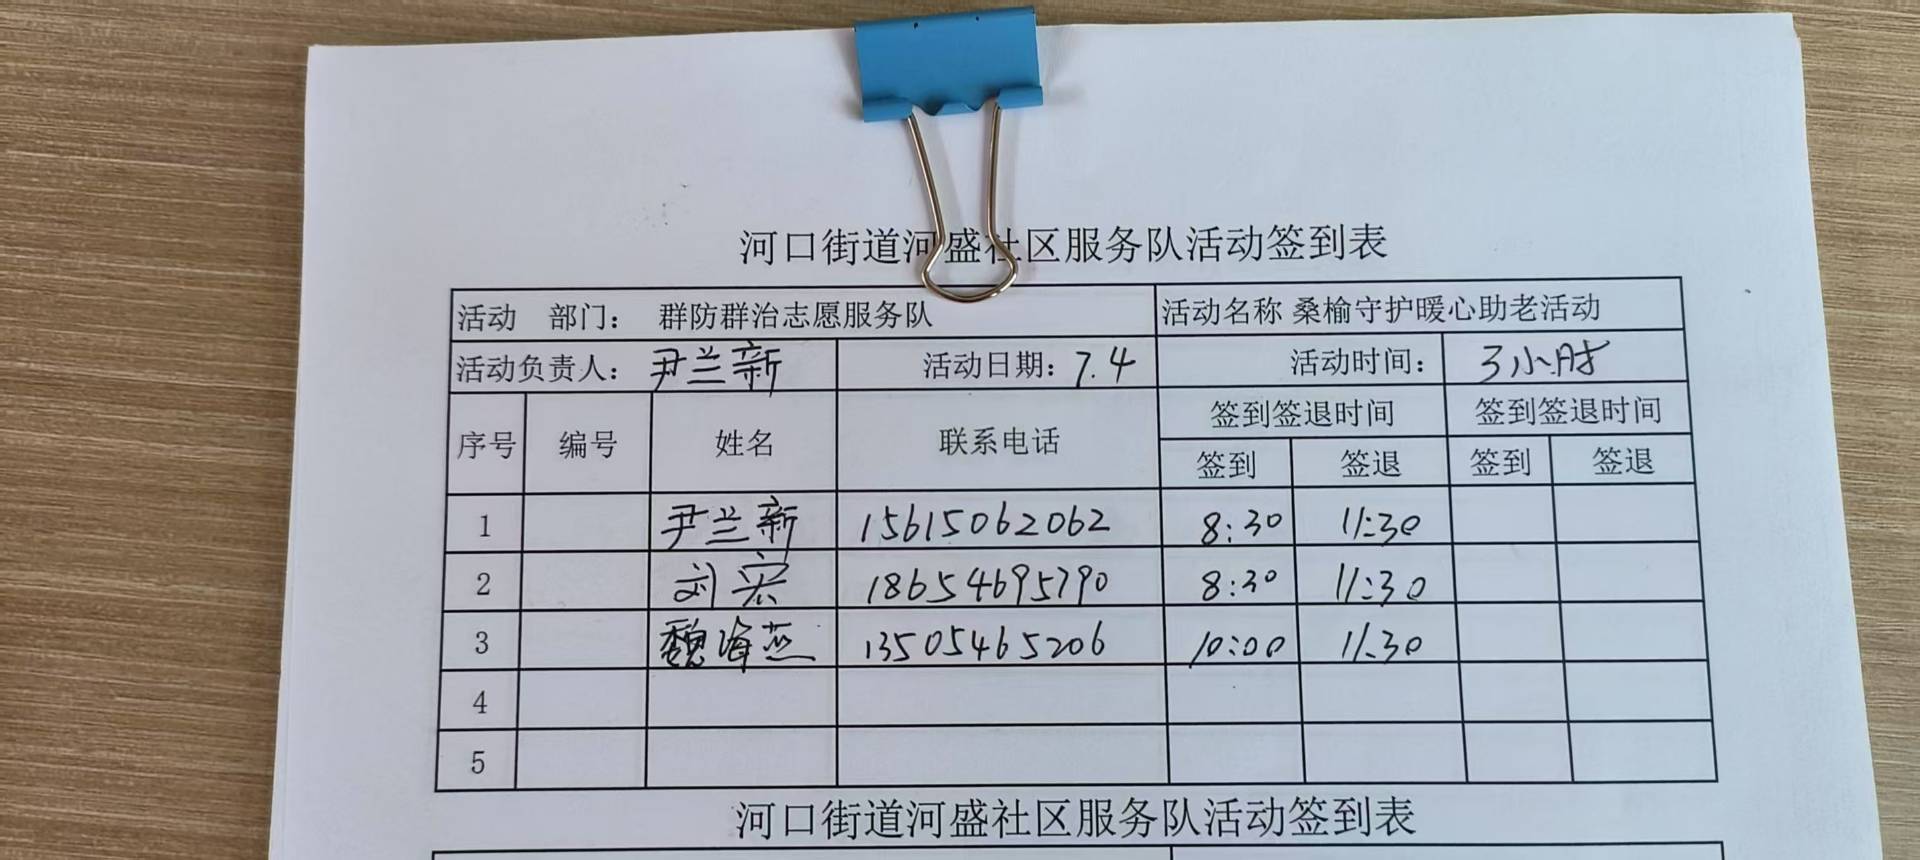 河口街道河盛社区服务队活动签到表
活动 部门： 群防群治志愿服务队 活动名称 桑榆守护暖心助老活动
活动负责人： 尹兰新 活动日期：7.4 活动时间： 3小时
序号 编号 姓名 联系电话 签到签退时间 签到签退时间
签到 签退 签到 签退
1 尹兰新 15615062062 8:30 11:30
2 刘宏 18654695790 8:30 11:30
3 魏海燕 13505465206 10:00 11:30
4
5
河口街道河盛社区服务队活动签到表